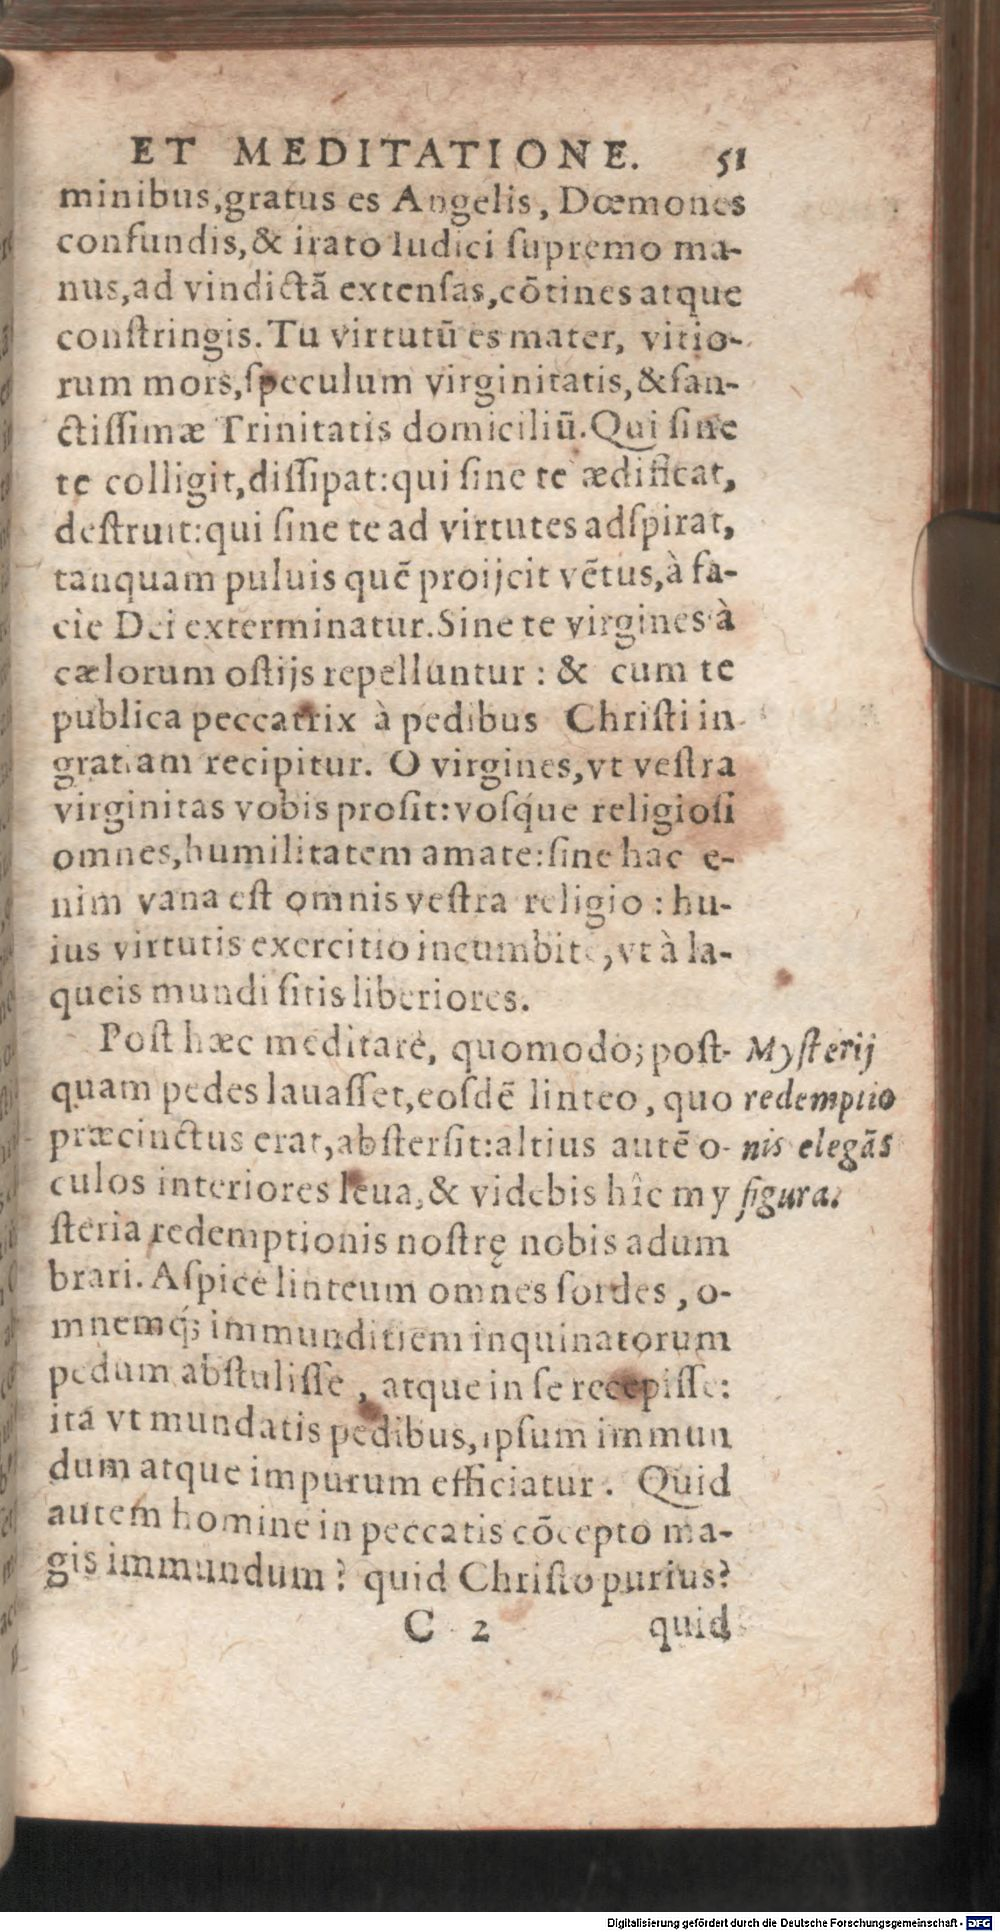 ET MEDITATIONE. 51
minibus,gratus es Angelis, Dœmones
confundis,& irato Iudici ſupremo ma-
nus,ad vindictã extenſas,cõtines atque
conſtringis. Tu virtutũ es mater, vitio-
rum mors,ſpeculum virginitatis,& ſan-
ctiſſimæ Trinitatis domiciliũ. Qui ſine
te colligit,diſſipat:qui ſine te ædificat,
deſtruit:qui ſine te ad virtutes adſpirat,
tanquam puluis quẽ proijcit vẽtus,à fa-
cie Dei exterminatur. Sine te virgines à
cælorum oſtijs repelluntur : & cum te
publica peccatrix à pedibus Chriſti in
gratiam recipitur. O virgines,vt veſtra
virginitas vobis proſit:voſq́ue religioſi
omnes,humilitatem amate:ſine hac e-
nim vana eſt omnis veſtra religio : hu-
ius virtutis exercitio incumbite,vt à la-
queis mundi ſitis liberiores.
Poſt hæc meditare, quomodo; poſt-
Myſterij
quam pedes lauaſſet,eoſdẽ linteo, quo
redemptio
præcinctus erat,abſterſit:altius autẽ o-
nis elegãs
culos interiores leua,& videbis hîc my
figura.
ſteria redemptionis noſtrę nobis adum
brari. Aſpice linteum omnes ſordes, o-
mnemq́; immunditiem inquinatorum
pedum abſtuliſſe, atque in ſe recepiſſe:
ita vt mundatis pedibus,ipſum immun
dum atque impurum efficiatur. Quid
autem homine in peccatis cõcepto ma-
gis immundum? quid Chriſto purius?
C 2 quid
Digitalisierung gefördert durch die Deutsche Forschungsgemeinschaft - DFG